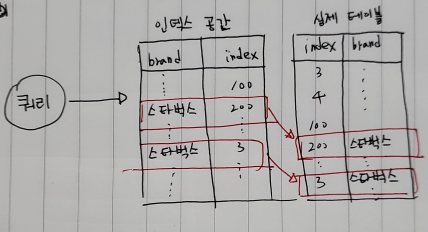 인덱스 공간
실제 테이블
brand index
index brand
쿼리
100
스타벅스 200
스타벅스 3
3
4
100
200 스타벅스
3 스타벅스